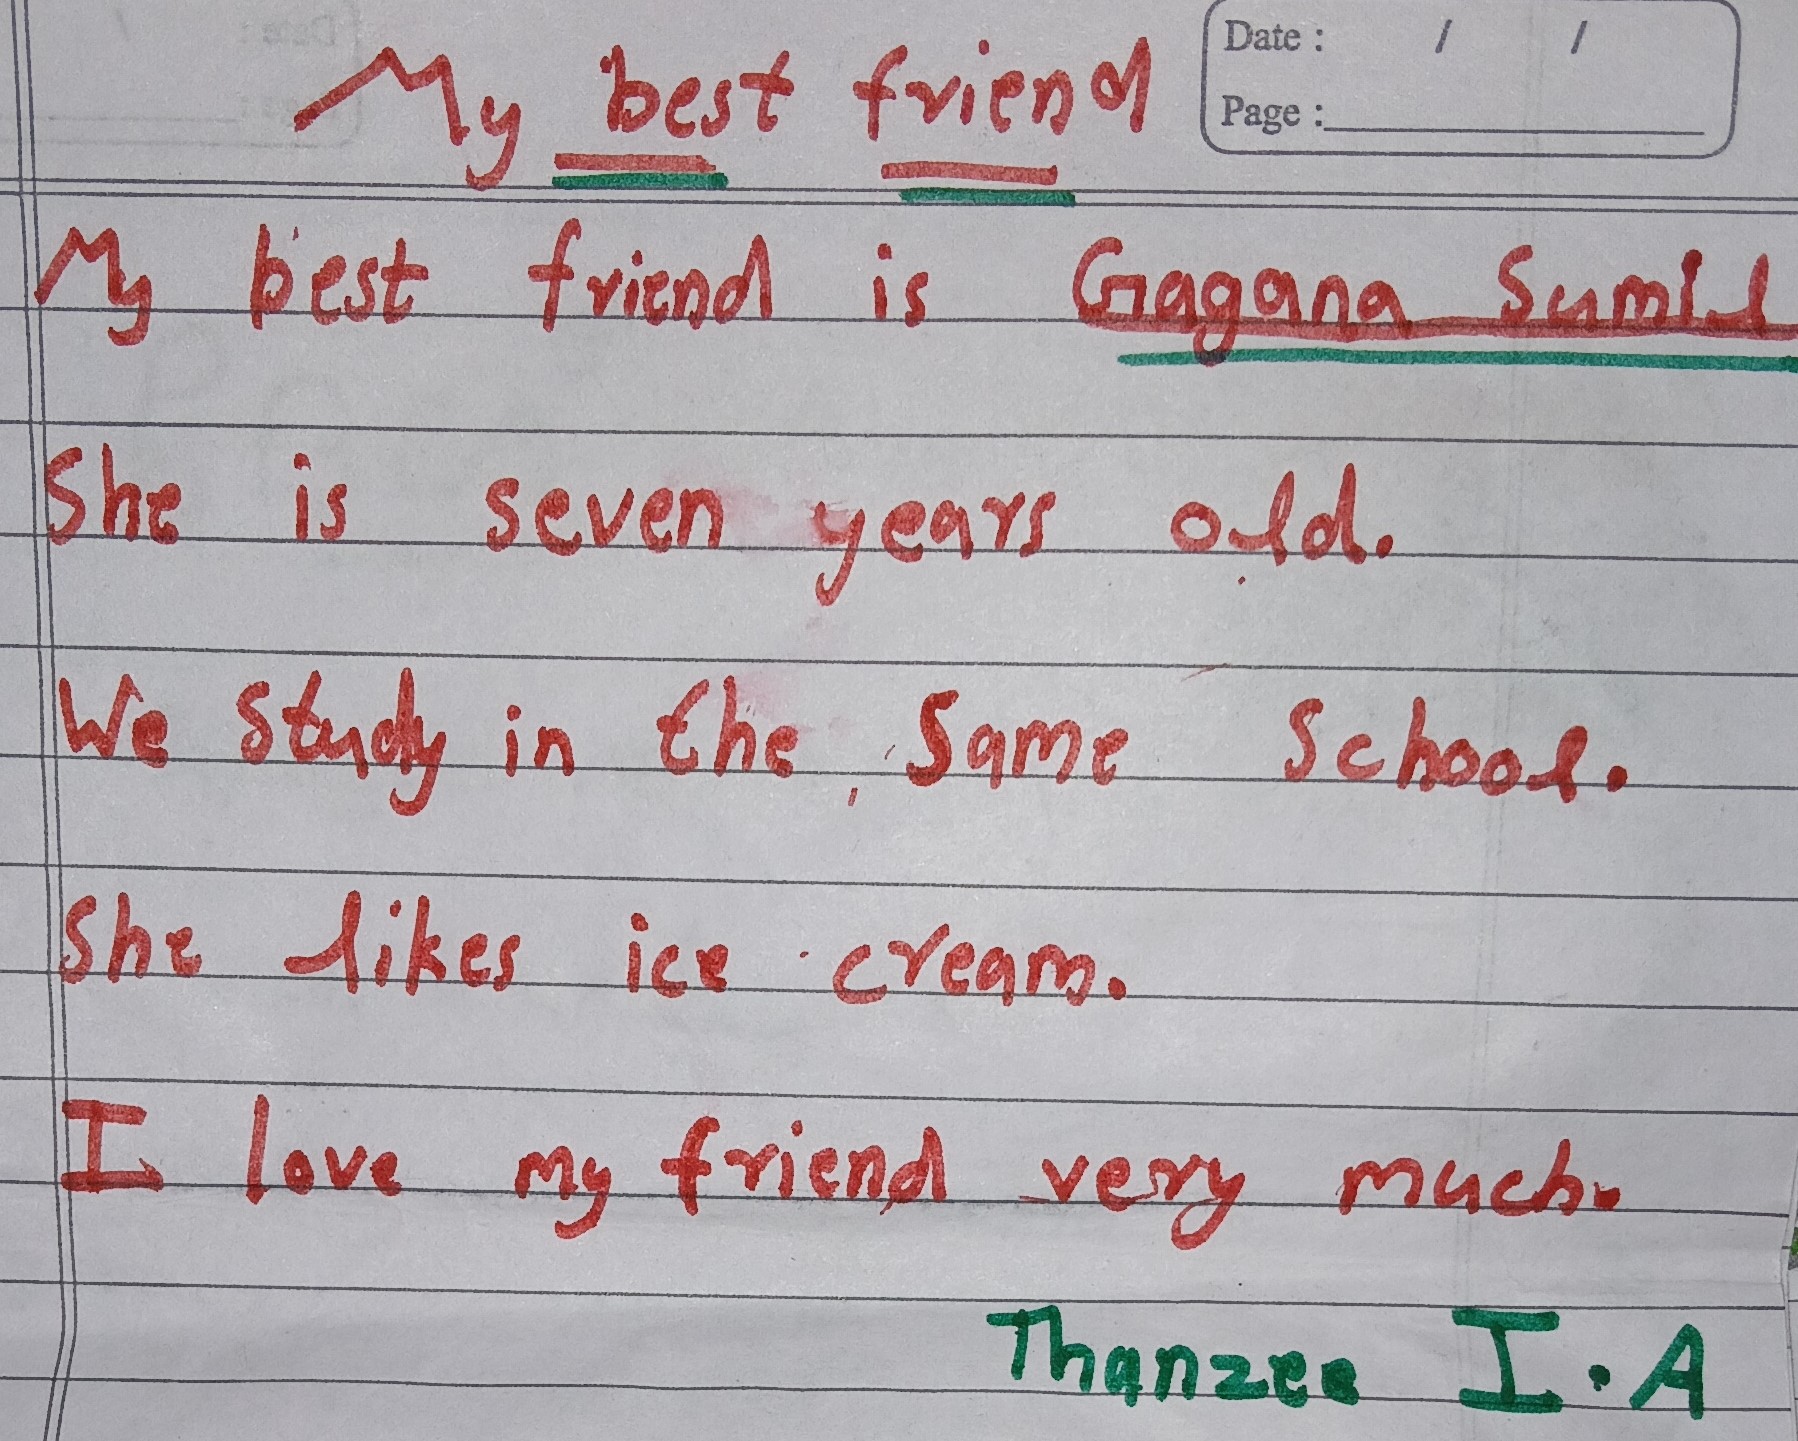 Date : / /
Page :
My best friend
My best friend is Gagana Sumil
She is seven years old.
We study in the Same School.
She likes ice cream.
I love my friend very much.
Thanzee I.A